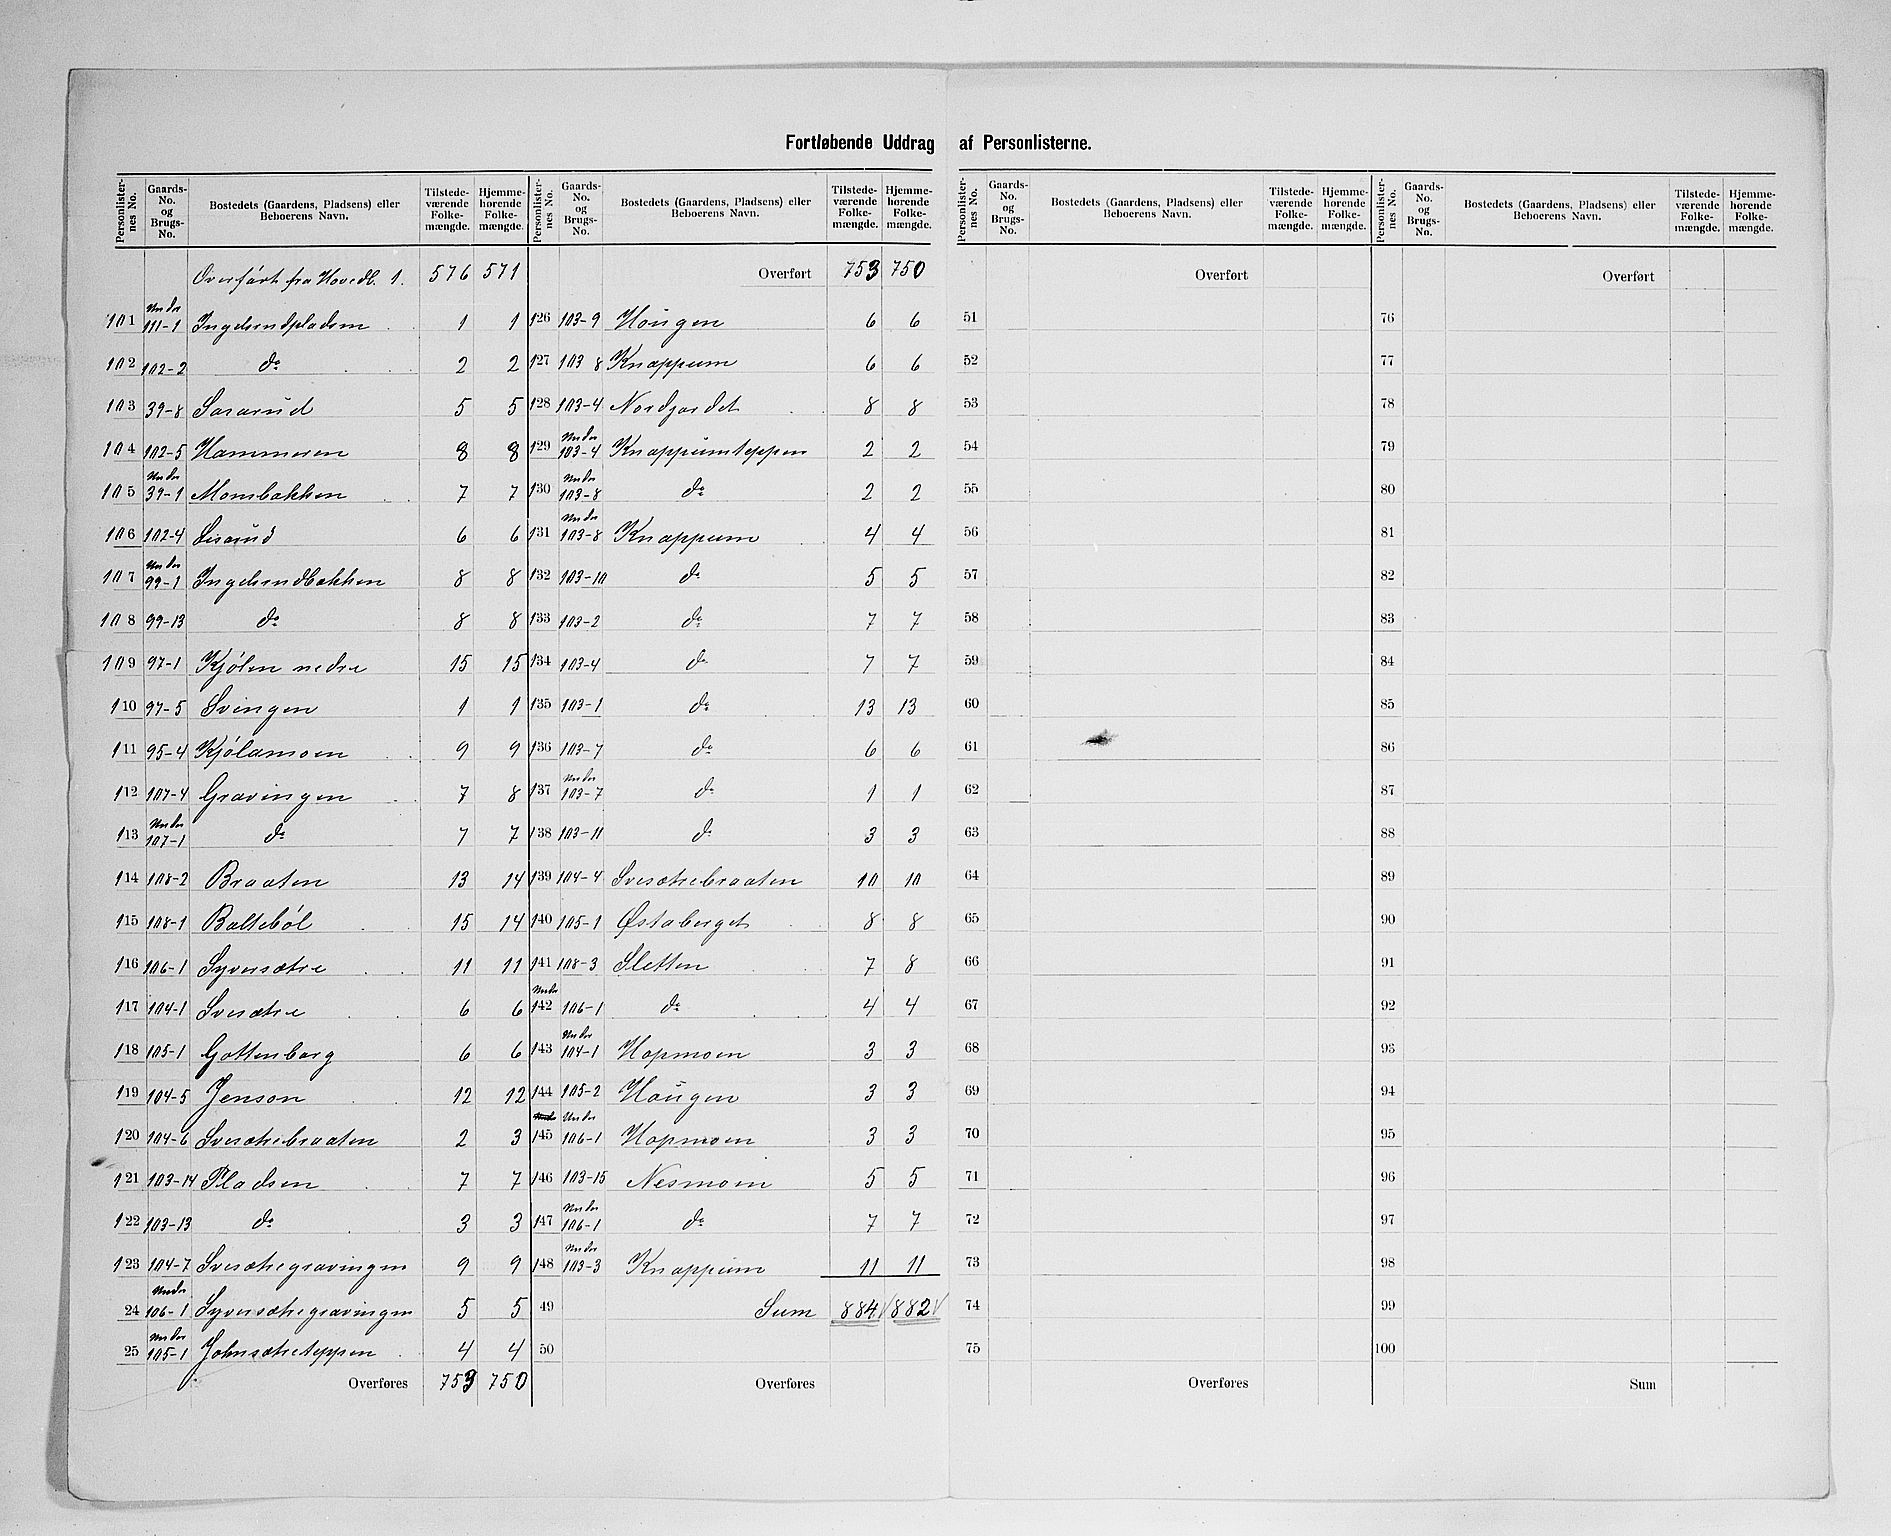 Fortløbende Uddrag af Personlisterne.
Personlisternes No. | Gaards-No. og Brugs-No. | Bostedets (Gaardens, Pladsens) eller Beboerens Navn. | Tilstedeværende Folkemængde. | Hjemmehørende Folkemængde.
Overført fra Hovedb. 1. 576 571
101 Under 111-1 Ingelsrudpladsen 1 1
102 102-2 do 2 2
103 39-8 Sararud 5 5
104 102-5 Hammeren 8 8
105 Under 39-1 Mombakken 7 7
106 102-4 6 6
107 Under 99-1 Ingelsrudbakken 8 8
108 99-13 do 8 8
109 97-1 Kjølen nedre 15 15
110 97-5 Svingen 1 1
111 95-4 Kjølamoen 9 9
112 107-4 Gravingen 7 8
113 Under 107-1 do 7 7
114 108-2 Braaten 13 14
115 108-1 Baltebøl 15 14
116 106-1 Syversætre 11 11
117 104-1 Svesætre 6 6
118 105-1 Gottenborg 6 6
119 104-5 Jenson 12 12
120 104-6 Svesætrebraaten 2 3
121 103-14 Pladsen 7 7
122 103-13 do 3 3
123 104-7 Svesætregravingen 9 9
24 Under 106-1 Syversætregravingen 5 5
25 Under 105-1 Johnsætreteppen 4 4
Overføres 753 750
Personlisternes No. | Gaards-No. og Brugs-No. | Bostedets (Gaardens, Pladsens) eller Beboerens Navn. | Tilstedeværende Folkemængde. | Hjemmehørende Folkemængde.
Overført 753 750
126 103-9 Haugen 6 6
127 103 8 Knappum 6 6
128 103-4 Nordjordet 8 8
129 Under 103-4 Knappumteppen 2 2
130 Under 103-8 do 2 2
131 Under 103-8 Knappum 4 4
132 103-10 do 5 5
133 103-2 do 7 7
134 103-4 do 7 7
135 103-1 do 13 13
136 103-7 do 6 6
137 Under 103-7 do 1 1
138 103-11 do 3 3
139 104-4 Svesætrebraaten 10 10
140 105-1 Østaberget 8 8
141 108-3 Sletten 7 8
142 Under 106-1 do 4 4
143 Under 104-1 Hopmoen 3 3
144 105-2 Haugen 3 3
145 Under 106-1 Hopmoen 3 3
146 103-15 Nesmoen 5 5
147 Under 106-1 do 7 7
148 Under 103-3 Knappum 11 11
49 Sum 884 882
50
Overføres
Personlisternes No. | Gaards-No. og Brugs-No. | Bostedets (Gaardens, Pladsens) eller Beboerens Navn. | Tilstedeværende Folkemængde. | Hjemmehørende Folkemængde.
Overført
51
52
53
54
55
56
57
58
59
60
61
62
63
64
65
66
67
68
69
70
71
72
73
74
75
Overføres
Personlisternes No. | Gaards-No. og Brugs-No. | Bostedets (Gaardens, Pladsens) eller Beboerens Navn. | Tilstedeværende Folkemængde. | Hjemmehørende Folkemængde.
Overført
76
77
78
79
80
81
82
83
84
85
86
87
88
89
90
91
92
93
94
95
96
97
98
99
100
Sum